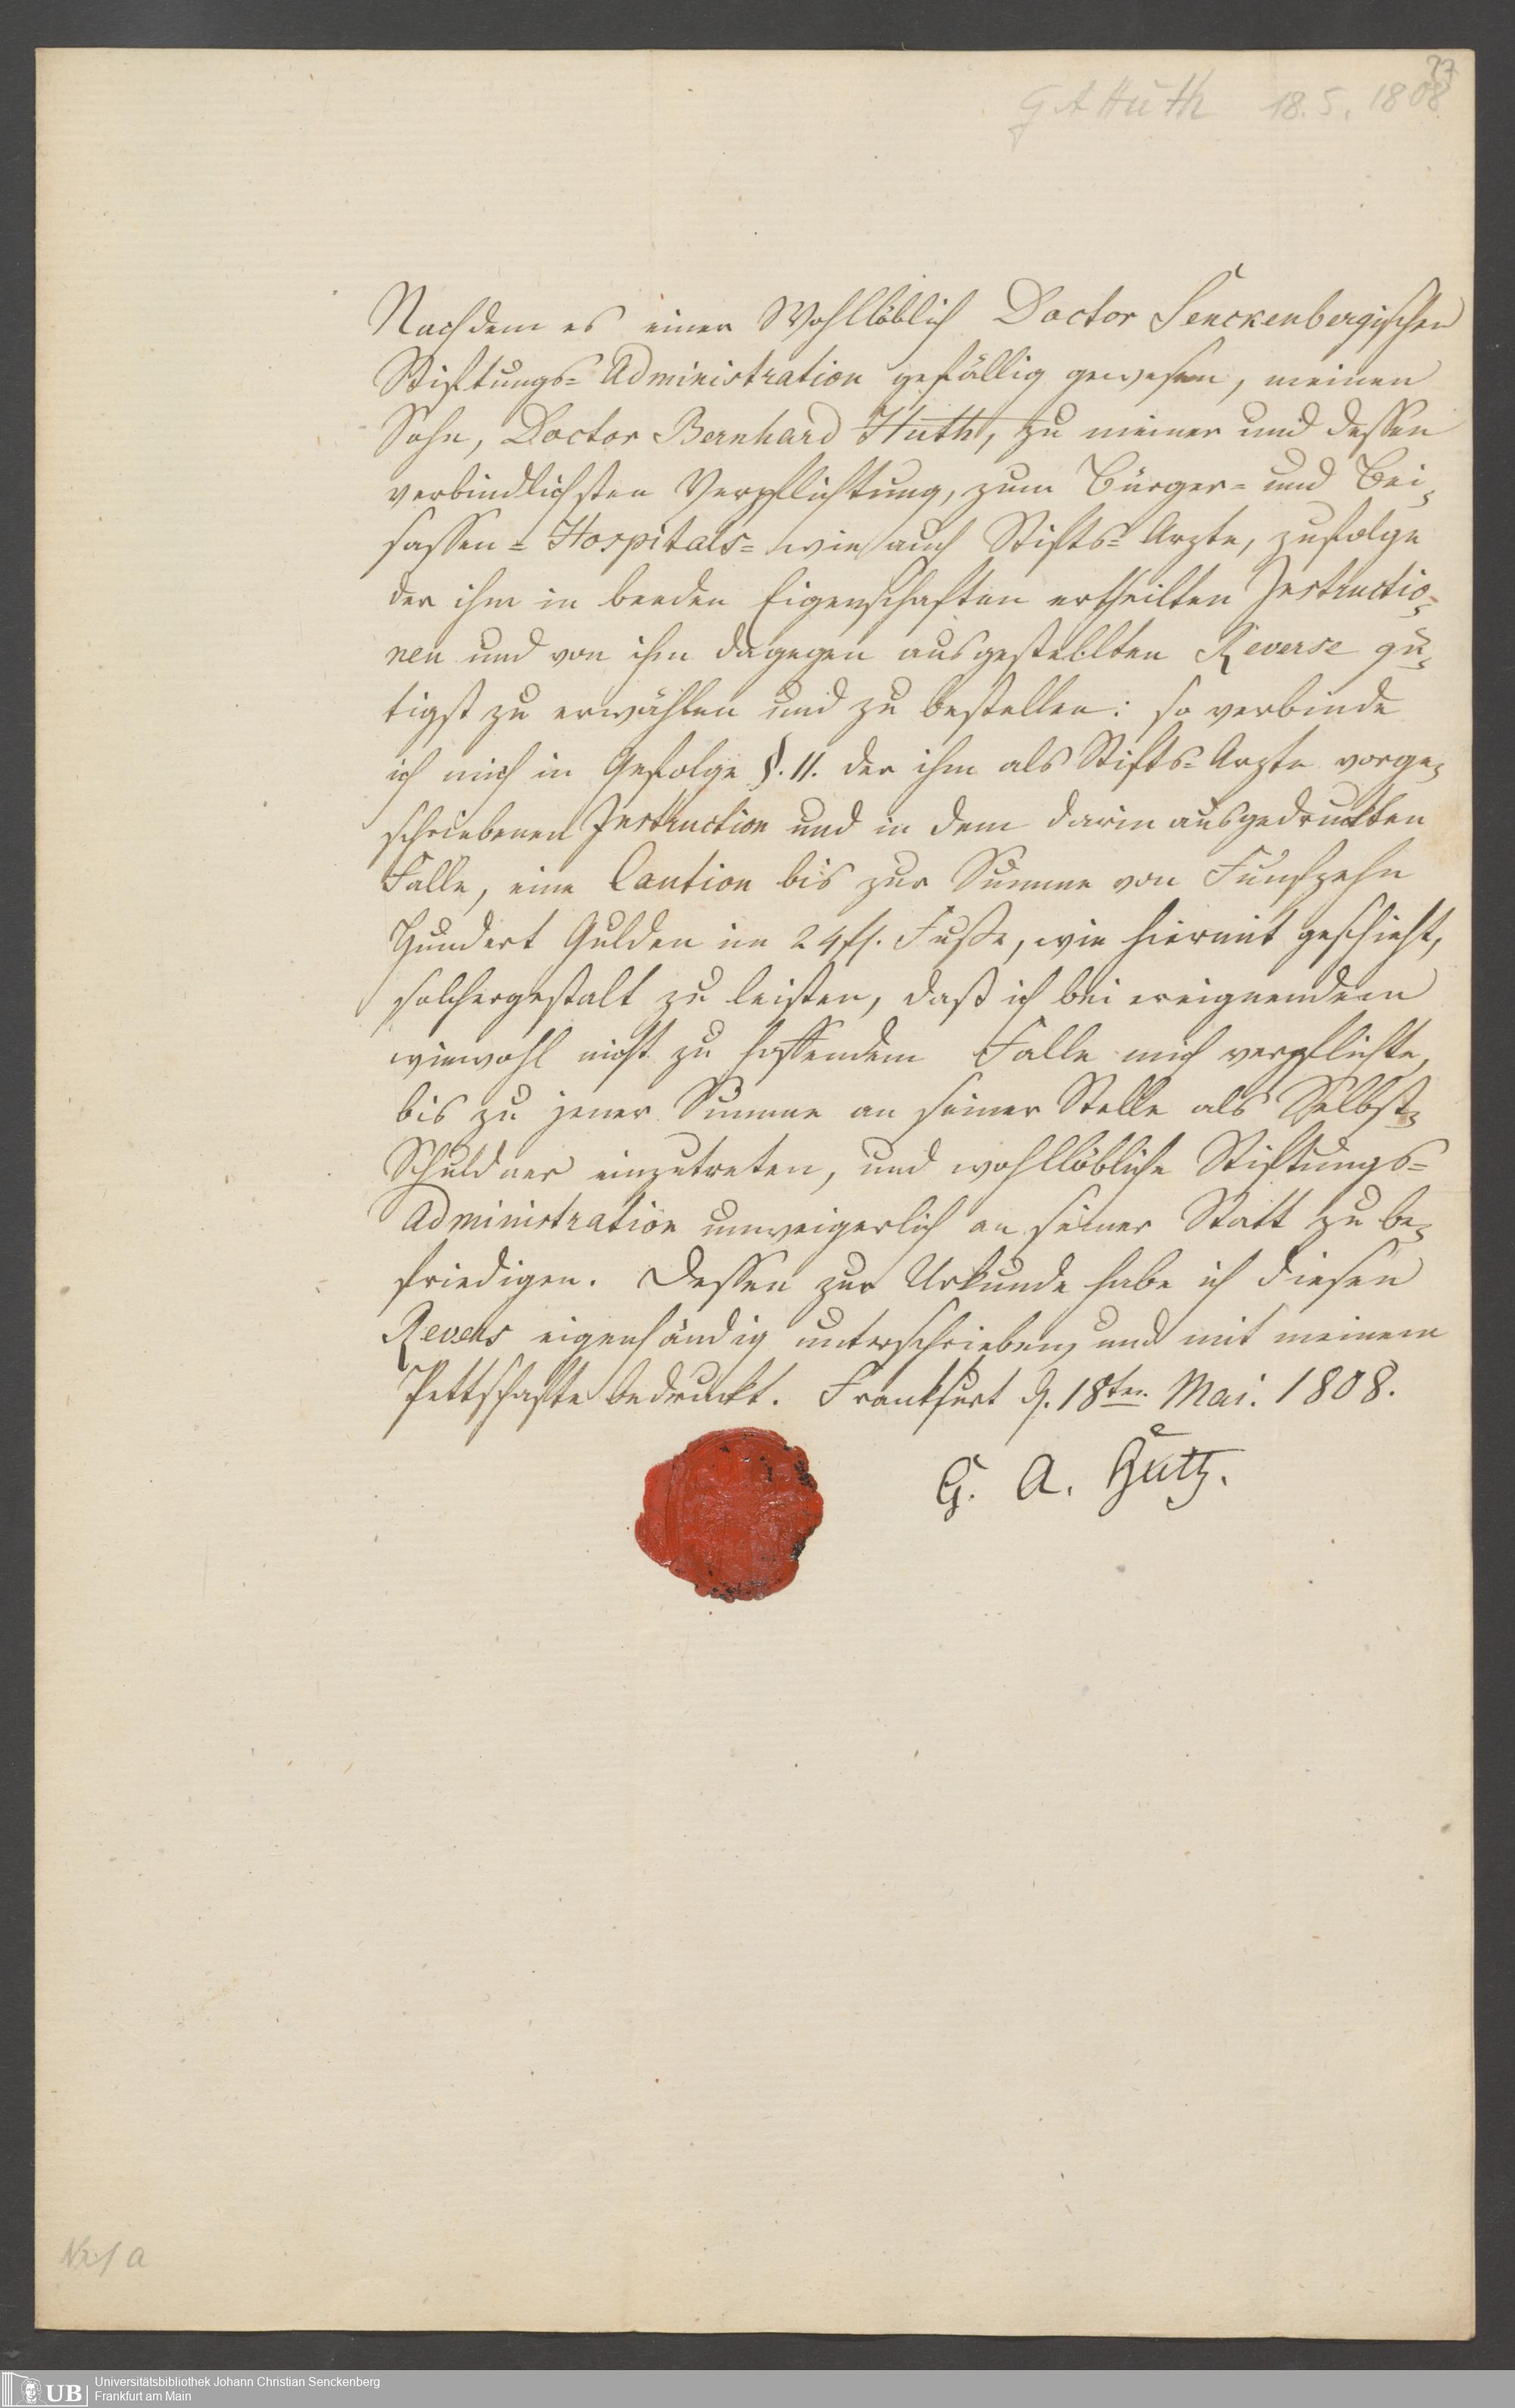 27
G A Huth 18. 5. 1808
Nachdem es einer Wohllöblich Doctor Senckenbergischen
Stiftungs= Administration gefällig gewesen, meinen
Sohn, Doctor Bernhard Huth, zu meiner und dessen
verbindlichsten Verpflichtung, zum Bürger= und Bei=
sassen= Hospitals= wie auch Stifts= Arzte, zufolge
der ihm in beeden Eigenschaften ertheilten Instructio=
nen und von ihm dagegen ausgestellten Reverse gü=
tigst zu erwählen und zu bestellen: so verbinde
ich mich in Gefolge §. 11. der ihm als Stifts= Arzte vorge=
schriebenen Instruction und in dem darin ausgedruckten
Falle, eine Caution bis zur Summe von Fünfzehn
Hundert Gulden im 24 fl. Fusse, wie hiermit geschieht,
solchergestalt zu leisten, daß ich bei ereignendem
wiewohl nicht zu hoffendem Falle mich verpflichte,
bis zu jener Summe an seiner Stelle als Selbst=
Schuldner einzutreten, und wohllöbliche Stiftungs=
Administration unweigerlich an seiner Statt zu be=
friedigen. Dessen zur Urkunde habe ich diesen
Revers eigenhändig unterschrieben, und mit meinem
Pettschafte bedruckt. Frankfurt d. 18ten. Mai. 1808.
G. A. Huth.
a
UB Universitätsbibliothek Johann Christian Senckenberg
Frankfurt am Main